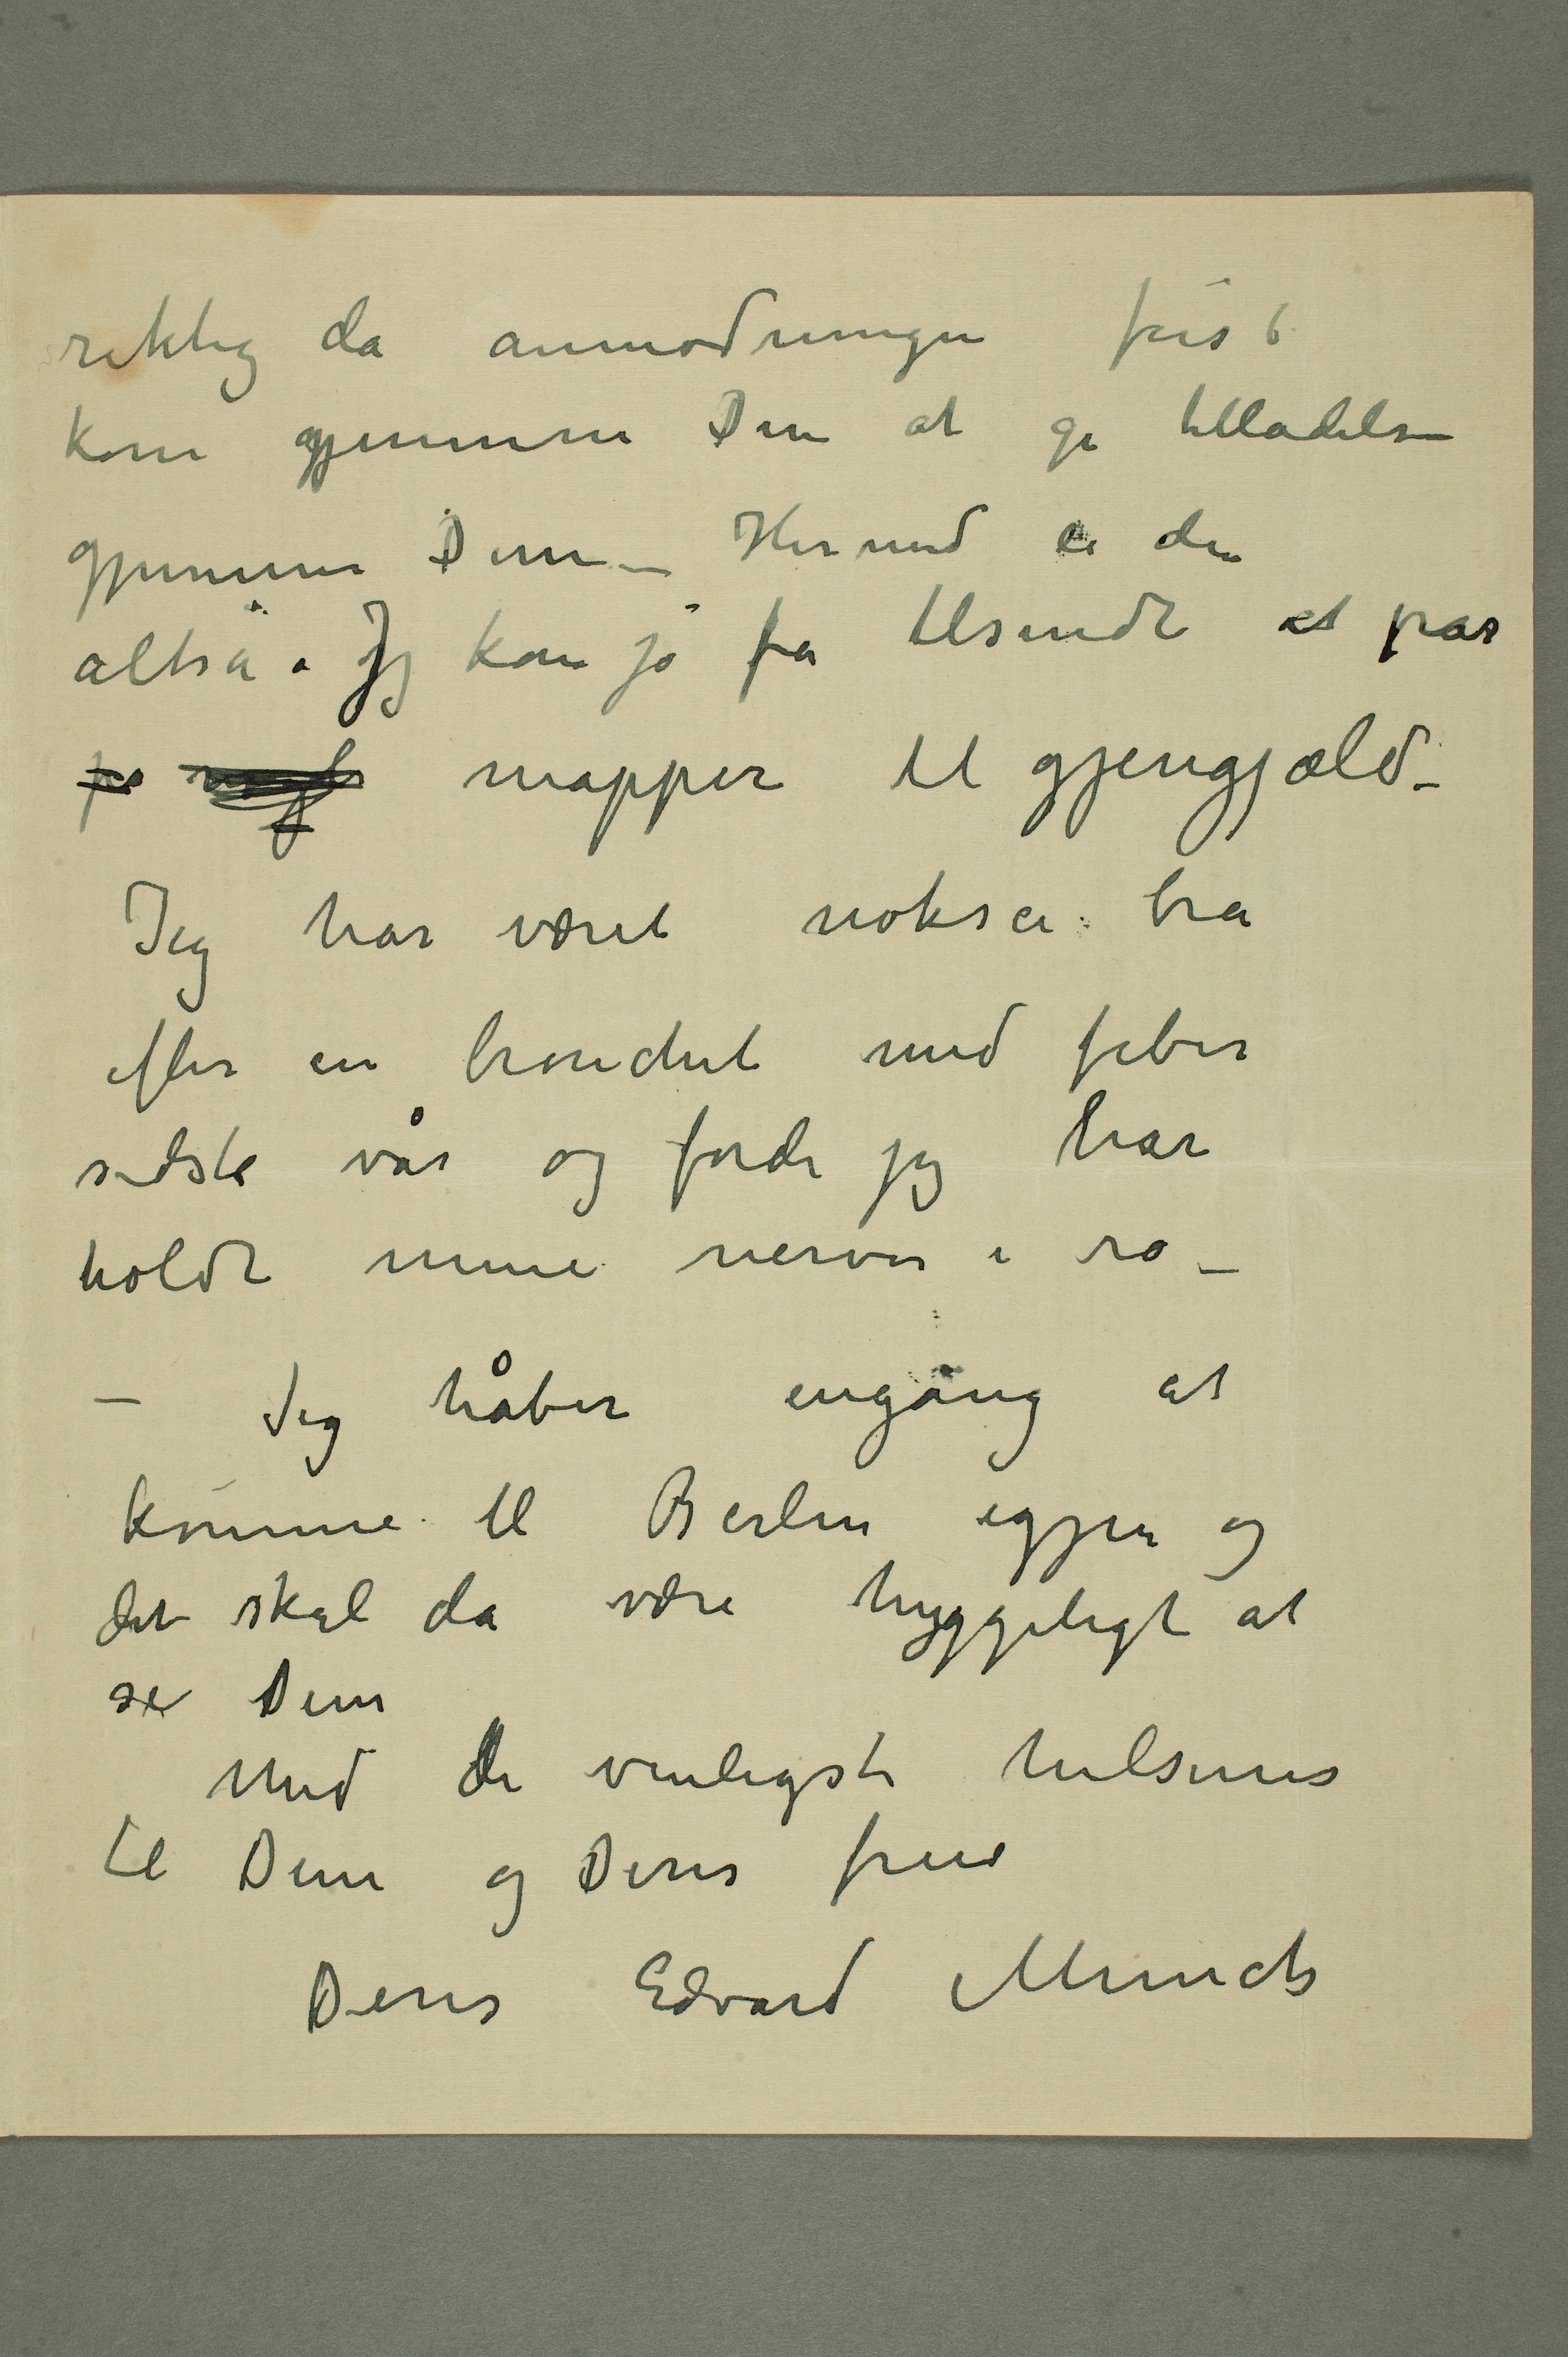 riktig da anmodningen først
kom gjennem Dem at gi tilladelsen
gjennem Dem – Hermed er den
altså. Jeg kan jo få tilsendt et par
mapper til gjengjæld –
Jeg har været noksa bra
efter en bronchit med feber
sidste vår og fordi jeg har
holdt mine nerver i ro –
– Jeg håber engang at
komme til Berlin igjen og
det skal da være hyggeligt at
se Dem
Med de venligste hilsener
til Dem og Deres frue
Deres Edvard Munch